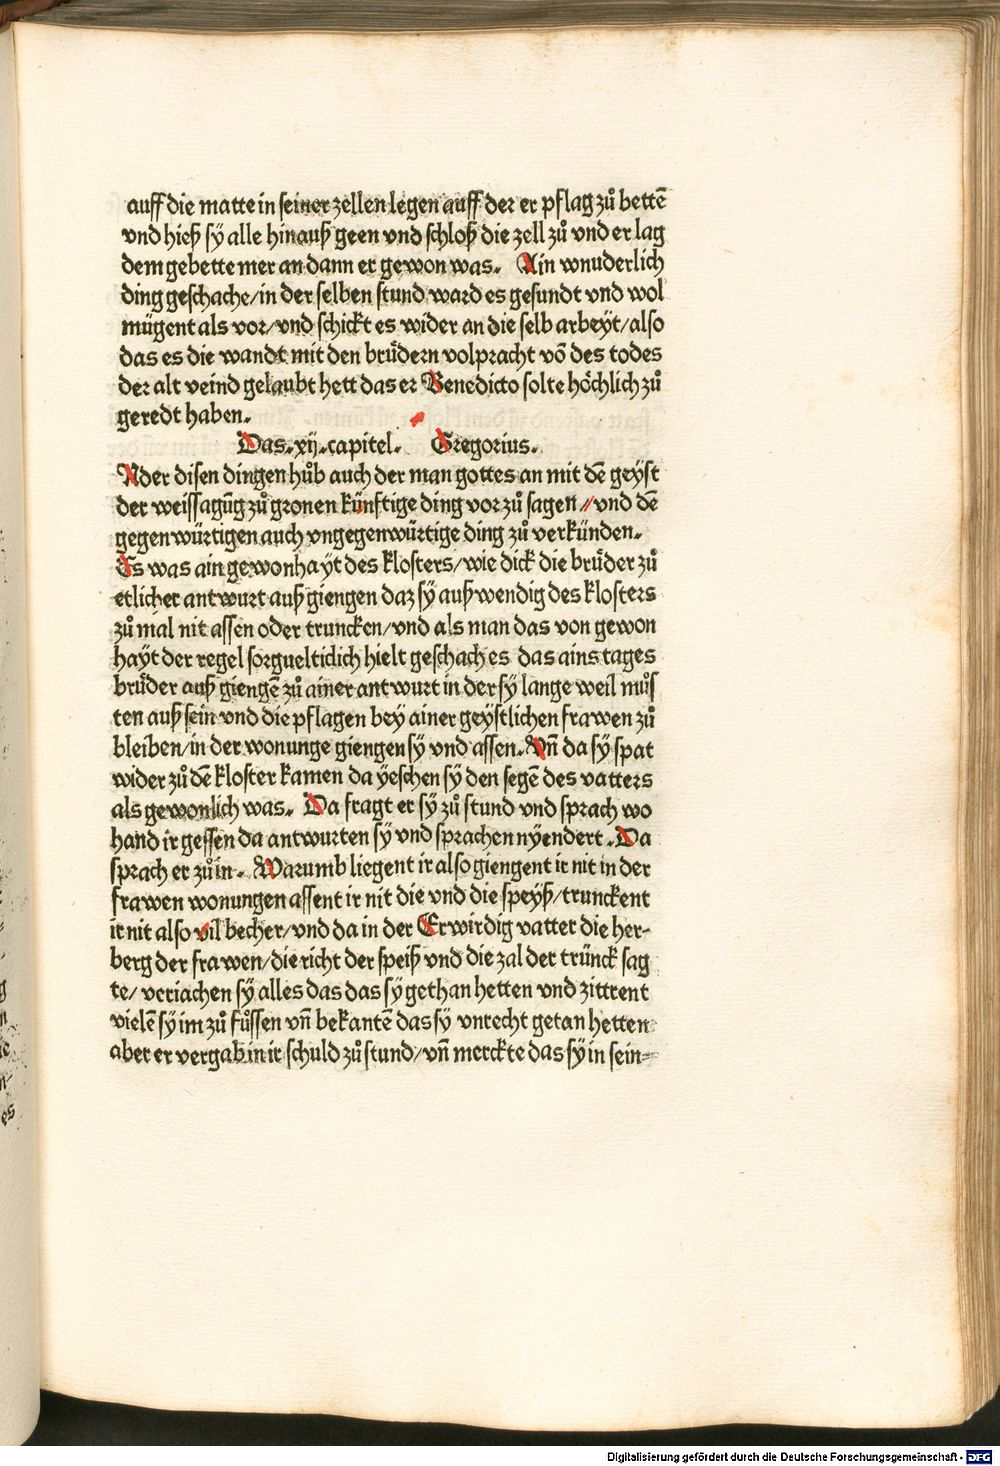 auff die matte in seiner zellen legen auff der er pflag zů bettē
vnd hieß sÿ alle hinauß geen vnd schloß die zell zů vnd er lag
dem gebette mer an dann er gewon was. Ain wnuderlich
ding geschache/in der selben stund ward es gesundt vnd wol
mügent als vor/vnd schickt es wider an die selb arbeÿt/also
das es die wandt mit den brůdern volpracht vō des todes
der alt veind gelaubt hett das er Benedicto solte höchlich zů
geredt haben.
Das.xij.capitel. Gregorius.
Ander disen dingen hůb auch der man gottes an mit dē geÿst
der weissagūg zů gronen künftige ding vor zů sagen/vnd dē
gegenwürtigen auch vngegenwürtige ding zů verkünden.
Es was ain gewonhaÿt des klosters/wie dick die brůder zů
etlicher antwurt auß giengen daz sÿ außwendig des klosters
zů mal nit assen oder truncken/vnd als man das von gewon
haÿt der regel sorguelticlich hielt geschach es das ains tages
brůder auß giengē zů ainer antwurt in der sÿ lange weil můs
ten auß sein vnd die pflagen beÿ ainer geÿstlichen frawen zů
bleiben/in der wonunge giengen sÿ vnd assen. Vn̄ da sÿ spat
wider zů dē kloster kamen da ÿeschen sÿ den segē des vatters
als gewonlich was. Da fragt er sÿ zů stund vnd sprach wo
hand ir gessen da antwurten sÿ vnd sprachen nÿendert. Da
sprach er zů in. Warumb liegent ir also giengent ir nit in der
frawen wonungen assent ir nit die vnd die speÿß/trunckent
ir nit also vil becher/vnd da in der Erwirdig vatter die her-
berg der frawen/die richt der speiß vnd die zal der trünck sag
te/veriachen sÿ alles das das sÿ gethan hetten vnd zittrent
vielē sÿ im zů fůssen vn̄ bekantē das sÿ vnrecht getan hetten
aber er vergab in ir schuld zů stund/vn̄ merckte das sÿ in sein=
Digitalisierung gefördert durch die Deutsche Forschungsgemeinschaft - DFG